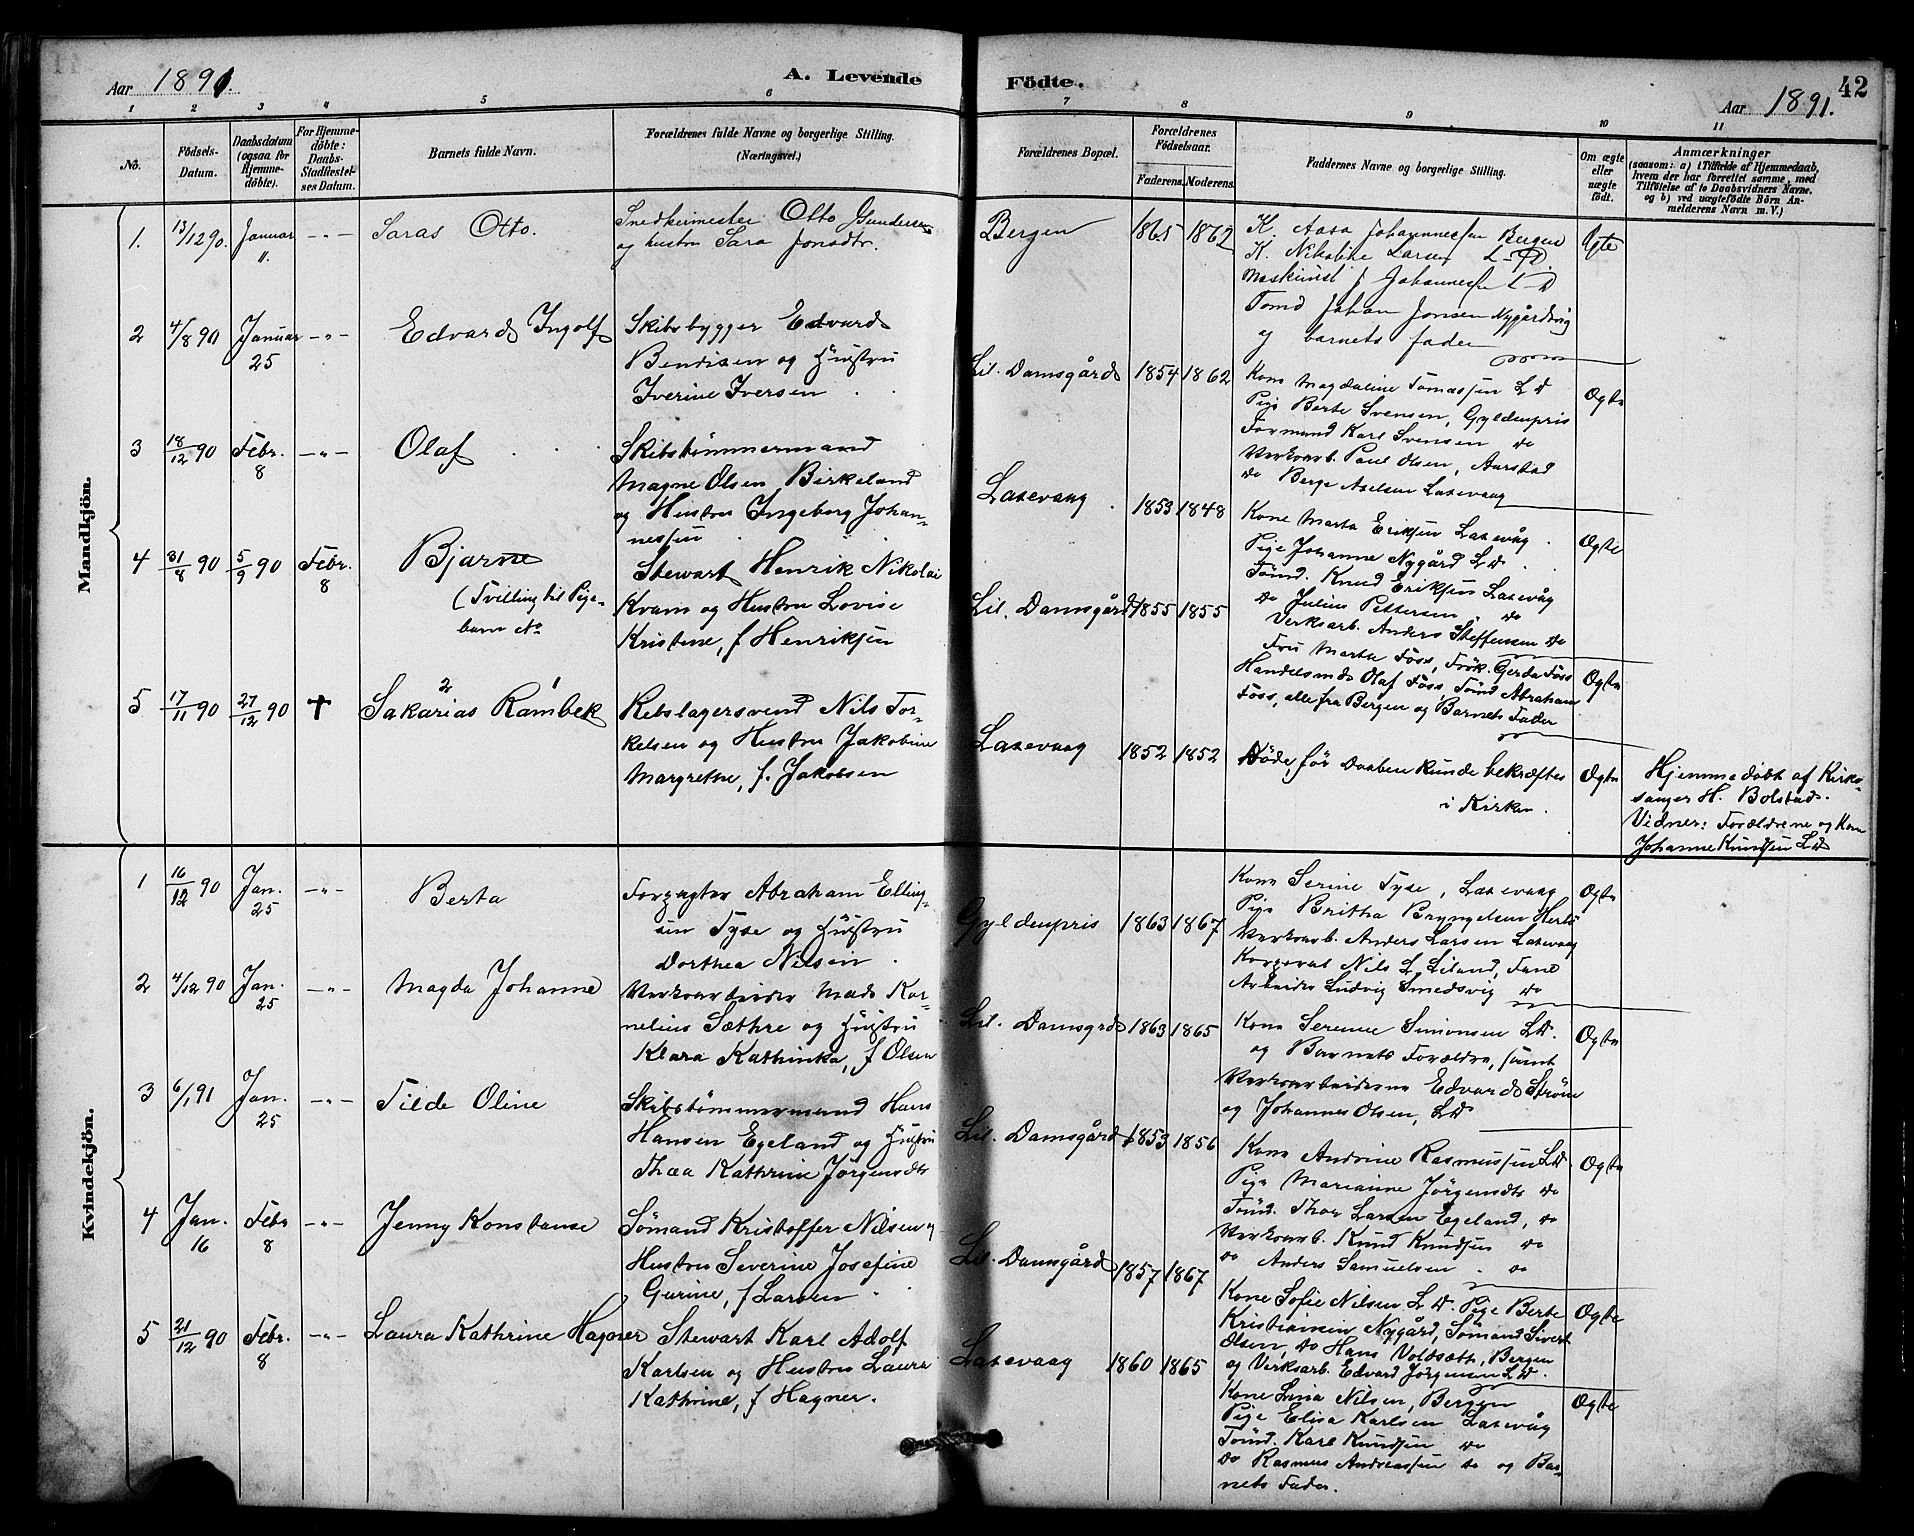 Aar 1891.
A. Levende
Födte.
42
Aar 1891.
1 2 3 4 5 6 7 8 9 10 11
No.
Födsels-Datum.
Daabsdatum (ogsaa for Hjemmedöbte).
For Hjemmedöbte: Daabs-Stadfæstelses Datum.
Barnets fulde Navn.
Forældrenes fulde Navne og borgerlige Stilling.
(Næringsvei.)
Forældrenes Bopæl.
Forældrenes Födselsaar.
Faderens. Moderens.
Faddernes Navne og borgerlige Stilling.
Om ægte eller uægte födt.
Anmærkninger
(saasom: a) i Tilfælde af Hjemmedaab,
hvem der har forrettet samme, med
Tilföielse af to Daabsvidners Navne,
og b) ved uægtefödte Börn An-
melderens Navn m. V.)
Mandkjön.
1. 13/12 90. Januar 11. -"- Saras Otto.
Snedkermester Otto Gundersen
og hustru Sara Jonsdtr.
Bergen 1865 1862
K. Aasa Johannessen Bergen
K. Nikoline Larsen L-D.
Maskinist J Johannessen L-D
Tømd Johan Jonsen Nygårdsvig
og barnets fader
Ægte
2 4/8 90 Januar 25 -"- Edvard Ingolf
Skibsbygger Edvard
Bendixen og Hustru
Iverine Iversen
Lil. Damsgård 1854 1862
Kone Magdaline Tomassen L D
Pige Berte Svensen, Gyldenpris
Formand Karl Svensen do
Verksarb. Paul Olsen, Aarstad
do Berge Axelsen Laxevaag
Ægte
3 18/12 90 Febr. 8 -"- Olaf
Skibstømmermand
Magne Olsen Birkeland
og Hustru Ingeborg Johan-
nessen
Laxevaag 1853 1848
Kone Marta Eriksen Laxevåg
Pige Johanne Nygård L D
Tømd. Knud Eriksen Laxevåg
do Julius Pettersen, do
Verksarb. Anders Steffensen do
Ægte
4 31/8 90 5/9 90 Febr. 8 Bjarne
(Tvilling til Pige-
barn No
Stewart Henrik Nikolai
Kvam og Hustru Lovise
Kristene, f Henriksen
Lil. Damsgård 1855 1855
Fru Marta Foss, Frøk. Gerda Foss
Handelsmd Olaf Foss, Tømd Abraham
Foss, alle fra Bergen og Barnets Fader
Ægte
5 17/11 90 27/12 90 † 2 1
Sakarias Rambek
Rebslagersvend Nils Tor-
kelsen og Hustru Jakobine
Margrethe, f. Jakobsen
Laxevaag 1852 1852
Döde, før Daaben kunde bekræftes
i Kirken.
Ægte
Hjemmedöbt af Kirke-
sanger H. Bolstad.
Vidner: Forældrene og Kone
Johanne Knudsen L D
Kvindekjön.
1 16/12 90 Jan. 25 -"- Berta
Forpagter Abraham Elling-
sen Tyse og Hustru
Dorthea Nilsen
Gyldenpris 1863 1867
Kone Serine Tyse, Laxevaag
Pige Britha Bryngelsen Herlø
Verksarb. Anders Larsen Laxevaag
Korporal Nils L. Liland, Fane
Arbeider Ludvig Smedsvig do
Ægte
2 4/12 90 Jan. 25 -"- Magda Johanne
Verksarbeider Mads Kor-
nelius Sæthre og Hustru
Klara Kathinka, f Olsen
Lil. Damsgrd 1863 1865
Kone Serenne Simonsen L D
og Barnets Forældre, samt
Verksarbeiderne Edvard Strøm
og Johannes Olsen, L D
Ægte
3 6/1 91 Jan. 25 -"- Tilde Oline
Skibstømmermand Hans
Hansen Egeland og Hustru
Thea Kathrine Jörgensdtr
Lil. Damsgård 1853 1856
Kone Andrine Rasmussen L D.
Pige Marianne Jörgensdtr do
Tømd. Thor Larsen Egeland, do
Verksarb. Knud Knudsen do
do Anders Samuelsen do
Ægte
4 Jan. 16 Febr 8 -"- Jenny Konstanse
Sömand Kristoffer Nilsen og
Hustru Severine Josefine
Gurine, f Larsen
Lil. Damsgård 1857 1867
Kone Sofie Nilsen L D. Pige Berte
Kristiansen Nygård, Sömand Sivert
Olsen, do Hans Voldsæth, Bergen
og Verksarb. Edvard Jörgensen L D.
Ægte
5 21/12 90 Febr. 8 -"- Laura Kathrine Hagner
Stewart Karl Adolf
Karlsen og Hustru Laura
Kathrine, f Hagner.
Laxevaag 1860 1865
Kone Lina Nilsen, Bergen
Pige Elisa Karlsen Laxevåg
Tømd. Karl Knudsen do
do Rasmus Andreassen do og Bar-
nets Fader.
Ægte